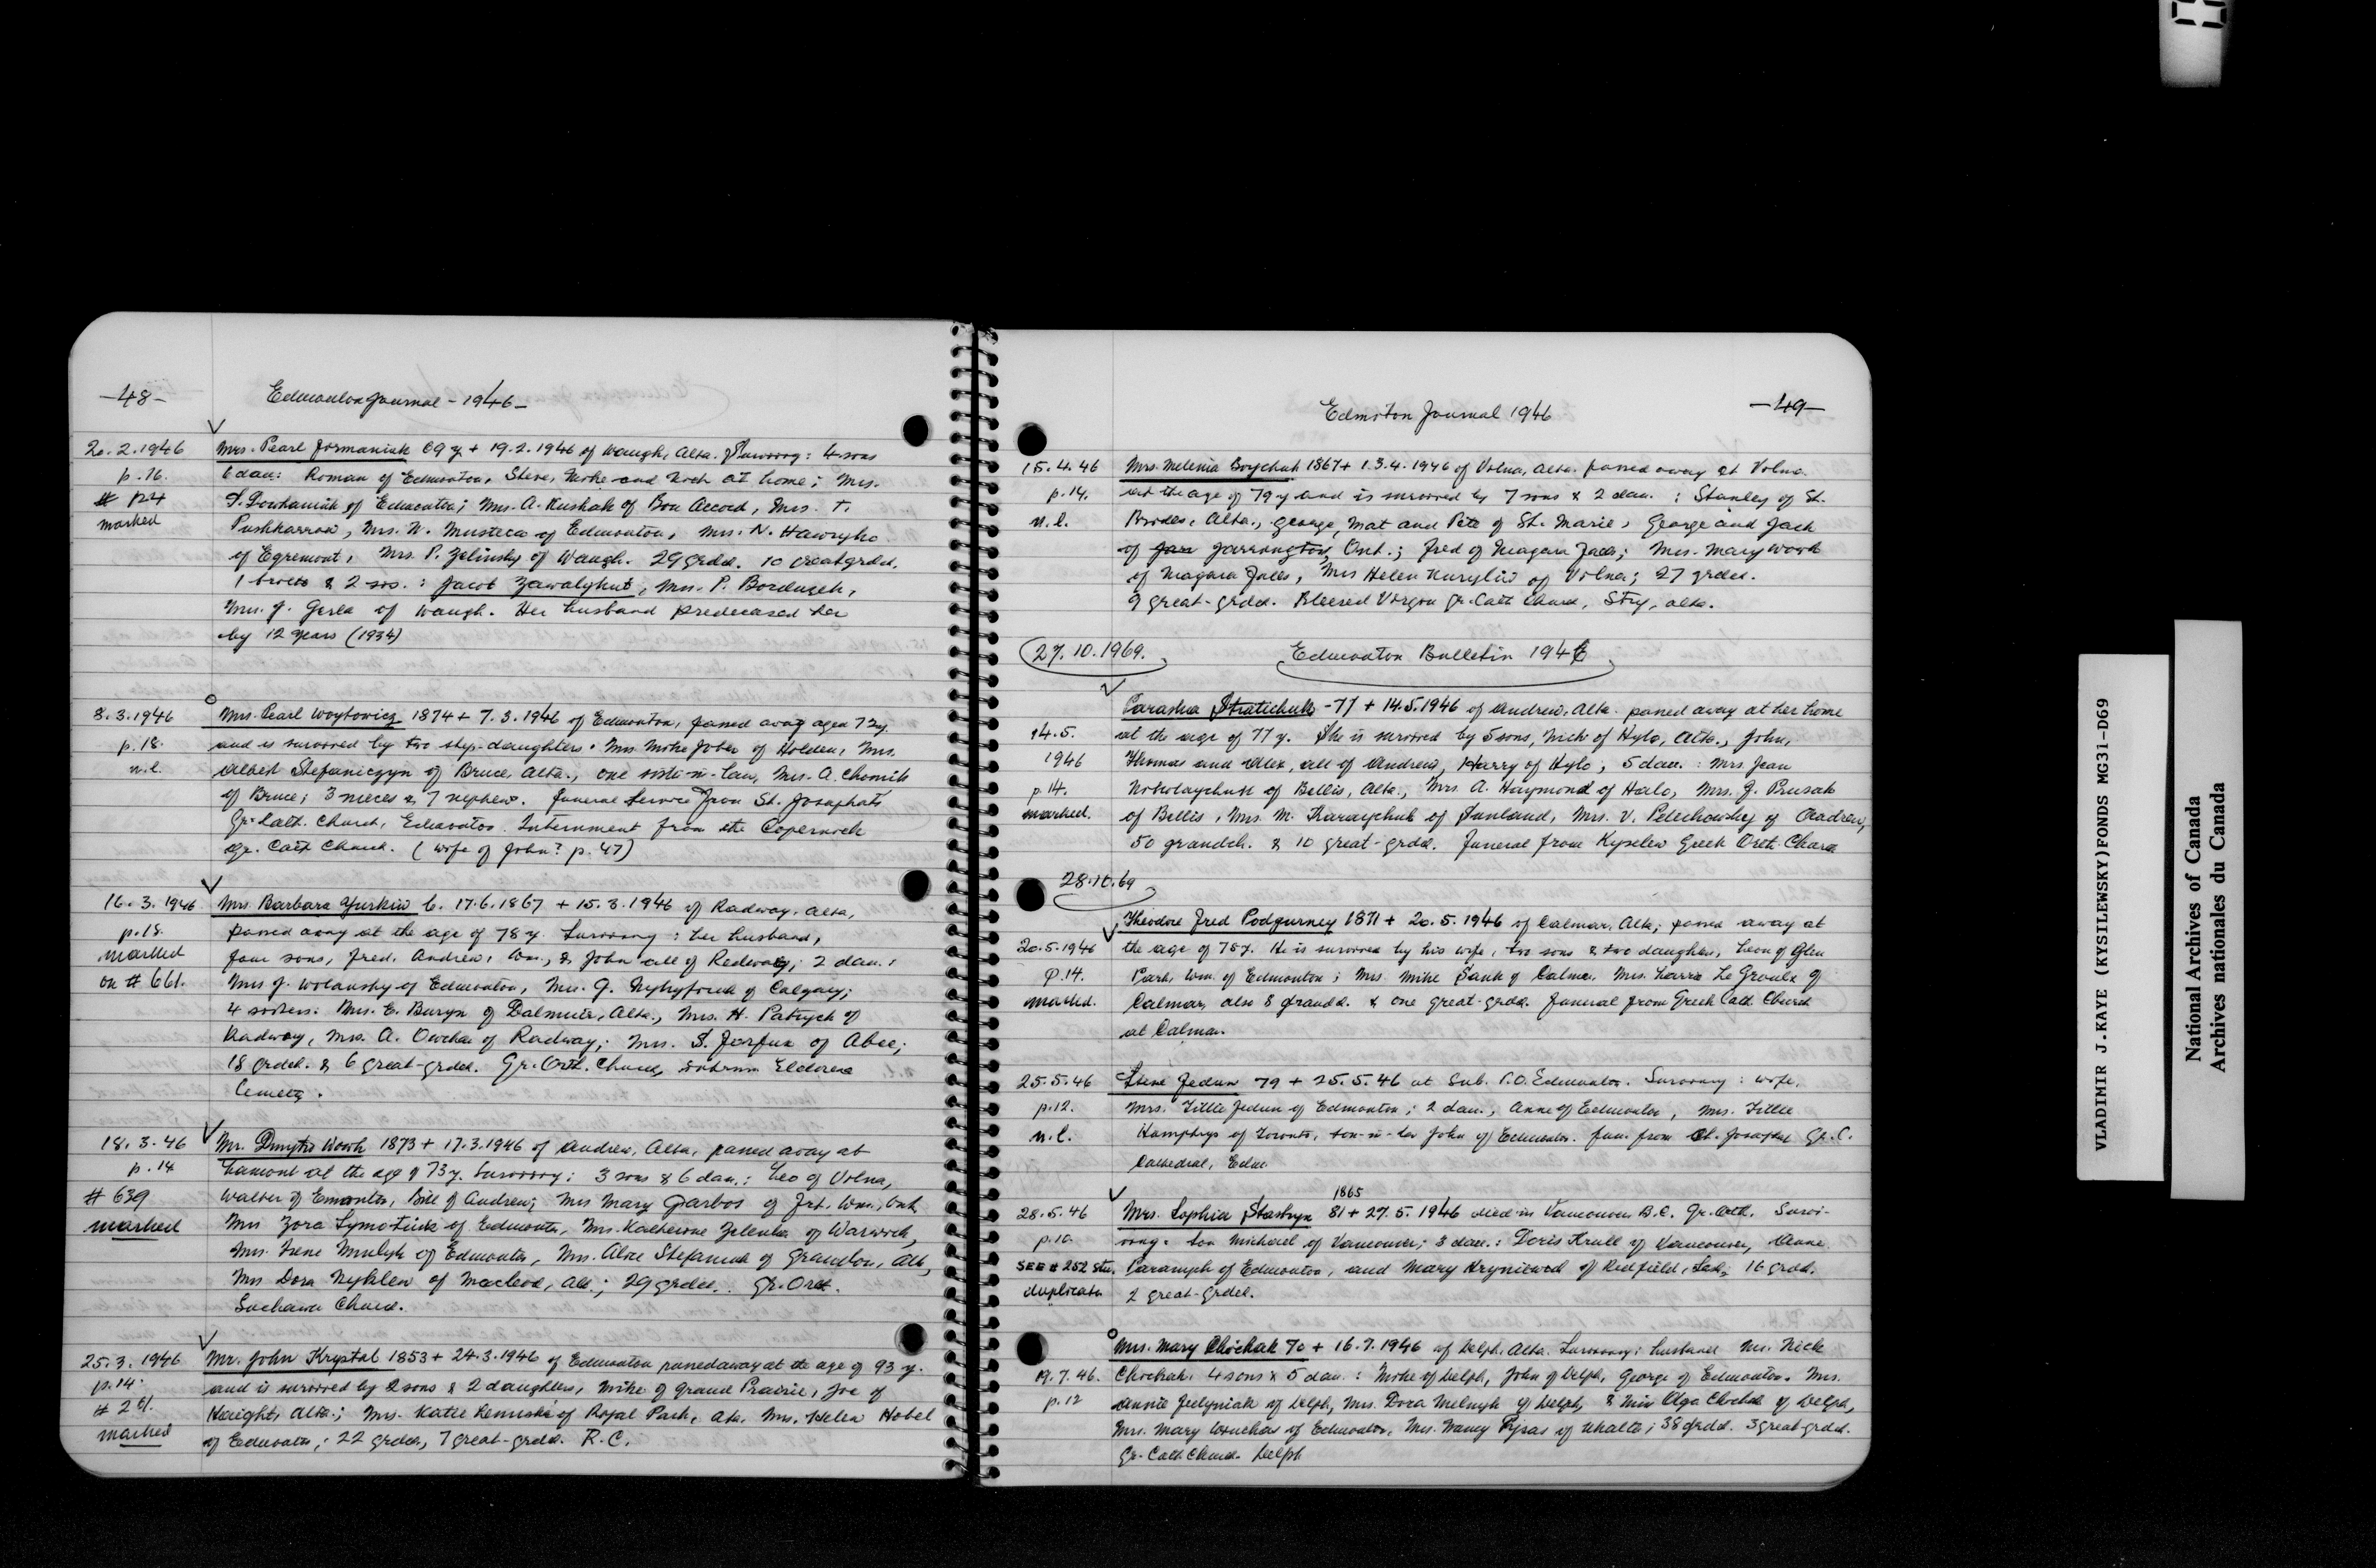 -48-
Edmonton Journal - 1946 -
20.2.1946 Mrs. Pearl Jormaniuk 69 y + 19.2.1946 of Waugh, Alta. Survivng: 4 sons
p.16. 6 dau: Roman of Edmonton, Steve, Mike and at home; Mrs.
# 124 of Edmonton; Mrs. A. Kushak of Bon Accord, Mrs. T.
marked Mrs. W. Musteca of Edmonton, Mrs. N. Hawryho
of Egremont, Mrs. P. Zelinsky of Waugh. 29 grdch. 10 greatgrdch.
1 broth & 2 sis. : Jacob Zawalykut, Mrs. P.
Mrs. J. Gerla of Waugh. Her husband predeceased her
by 12 years (1934)
8.3.1946 Mrs. Pearl Woytowicz 1874 + 7.3.1946 of Edmonton, passed away aged 72 y.
p.18. and is survived by two step-daughters: Mrs Mike Jober of Holden, Mrs.
n.l. Albert Stefaniczyn of Bruce, Alta., one sister-in-law, Mrs. A. Chomik
of Bruce; 3 nieces & 7 nephew. Funeral Service from St. Josaphat's
Gr. Cath. Church, Edmonton. Internment from the Copernick
Gr. Cath Church. (wife of John? p. 47)
16.3.1946 Mrs Barbara Yurkiw b. 17.6.1867 + 15.3.1946 of Radway, Alta,
p.18. passed away at the age of 78 y. Survivng: her husband,
marked four sons, Fred, Andrew, Wm., & John all of Redway; 2 dau.:
on # 661. Mrs J. Wolansky of Edmonton, Mrs. G. of Calgary;
4 sisters: Mrs. E. Buryn of Dalmuir, Alta., Mrs. H. Patryck of
Radway, Mrs. A. Owchar of Radway; Mrs. S. Farfus of Abee;
18 grdch. & 6 great-grdch. Gr. Orth. Church, Eldorena
Cemetery.
18.3.46 Mr. Dmytro Worh 1873 + 17.3.1946 of Andrew, Alta, passed away at
p.14 Lamont at the age of 73 y. Survivng: 3 sons & 6 dau.: Leo of Vilna,
# 639 Walter of Emonton, Bill of Andrew; Mrs Mary Garbos of Frt. Wm., Ont.
marked Mrs Zora of Edmonton, Mrs. Katherine Zelenka of Warwick,
Mrs. Irene of Edmonton, Mrs. Alice Stefaniuk of Grandon, Alb,
Mrs Dora of Macleod, Alb.; 29 grdch. Gr. Orth.
Suchawa Church.
25.3.1946 Mr. John Krystal 1853 + 24.3.1946 of Edmonton passed away at the age of 93 y.
p.14. and is survived by 2 sons & 2 daughters, Mike of Grand Prairie, Joe of
# 261. Haight, Alta.; Mrs. Katie of Royal Park, Alta. Mrs. Helen Hobel
marked of Edmonton; 22 grdch, 7 great-grdch. R.C.
-49-
Edmoton Journal 1946
15.4.46 Mrs. Melenia Boychuk 1867 + 13.4.1946 of Vilna, Alta. passed away at Vilna
p.14. at the age of 79 y and is survived by 7 sons & 2 dau. : Stanley of St.
n.l. Brides, Alta., George, Mat and Pete of St. Marie, George and Jack
of Jarrington, Ont.; Fred of Niagara Falls; Mrs. Mary Worh
of Niagara Falls, Mrs Helen Kuryliw of Vilna; 27 grdch.
9 great-grdch. Blessed Virgin Gr. Cath Church, Stry, Alta.
27.10.1969. Edmonton Bulletin 1946
Paraska Stratichuk - 77 + 14.5.1946 of Andrew, Alta. passed away at her home
14.5. at the age of 77 y. She is survived by 5 sons, Nick of Hylo, Alta., John,
1946 Thomas and Alex, all of Andrew, Harry of Hylo; 5 dau. : Mrs. Jean
p.14. of Bellis, Alta., Mrs. A. Haymond of Halo, Mrs. J. Prusak
marked. of Bellis, Mrs. M. Karaychuk of Sunland, Mrs. V. Pelechowsky of Andrew,
50 grandch. & 10 great-grdch. Funeral from Kyselew Greek Orth. Church
28.10.69
Theodore Fred Podgurney 1871 + 20.5.1946 of Calmar, Alta; passed away at
20.5.1946 the age of 75 y. He is survived by his wife, two sons & two daughters, Leon of Glen
p.14. Park, Wm. of Edmonton; Mrs. Mike Sank of Calmar, Mrs. Larrie Le Groulx of
marked. Calmar, also 8 grandch. & one great-grdch. Funeral from Greek Cath Church
at Calmar.
25.5.46 Steve Fedun 79 + 25.5.46 at Sub. P.O. Edmonton. Survivng: wife,
p.12. Mrs. Tillie Fedun of Edmonton; 2 dau., Anne of Edmonton, Mrs. Tillie
n.l. Humphrys of Toronto, son-in-law John of Edmonton. Fun. from St. Josaphat Gr. C.
Cathedral, Edm.
1865
28.5.46 Mrs. Sophia Stastyn 81 + 27.5.1946 died in Vancouver B.C. Gr. Orth. Survi-
p.10. vong: son Michael of Vancouver; 3 dau.: Doris Krull of Vancouver, Anne
SEE # 252 Stu. of Edmonton, and Mary Kryniewed of Redfield, Sask. 16 grdch.
duplicate 2 great-grdch.
Mrs. Mary Chichak 70 + 16.7.1946 of Delph, Alta. Survivng: husband Mr. Nick
19.7.46. Chichak, 4 sons & 5 dau.: Mike of Delph, John of Delph, George of Edmonton. Mrs.
p.12 Annie of Delph, Mrs. Dora Melnyk of Delph, & Miss Olga Chichak of Delph,
Mrs. Mary of Edmonton, Mrs. Nancy of ; 38 grdch. 3 great-grdch.
Gr. Cath Church Delph
VLADIMIR J.KAYE (KYSILEWSKY)FONDS MG31-D69
National Archives of Canada
Archives nationales du Canada